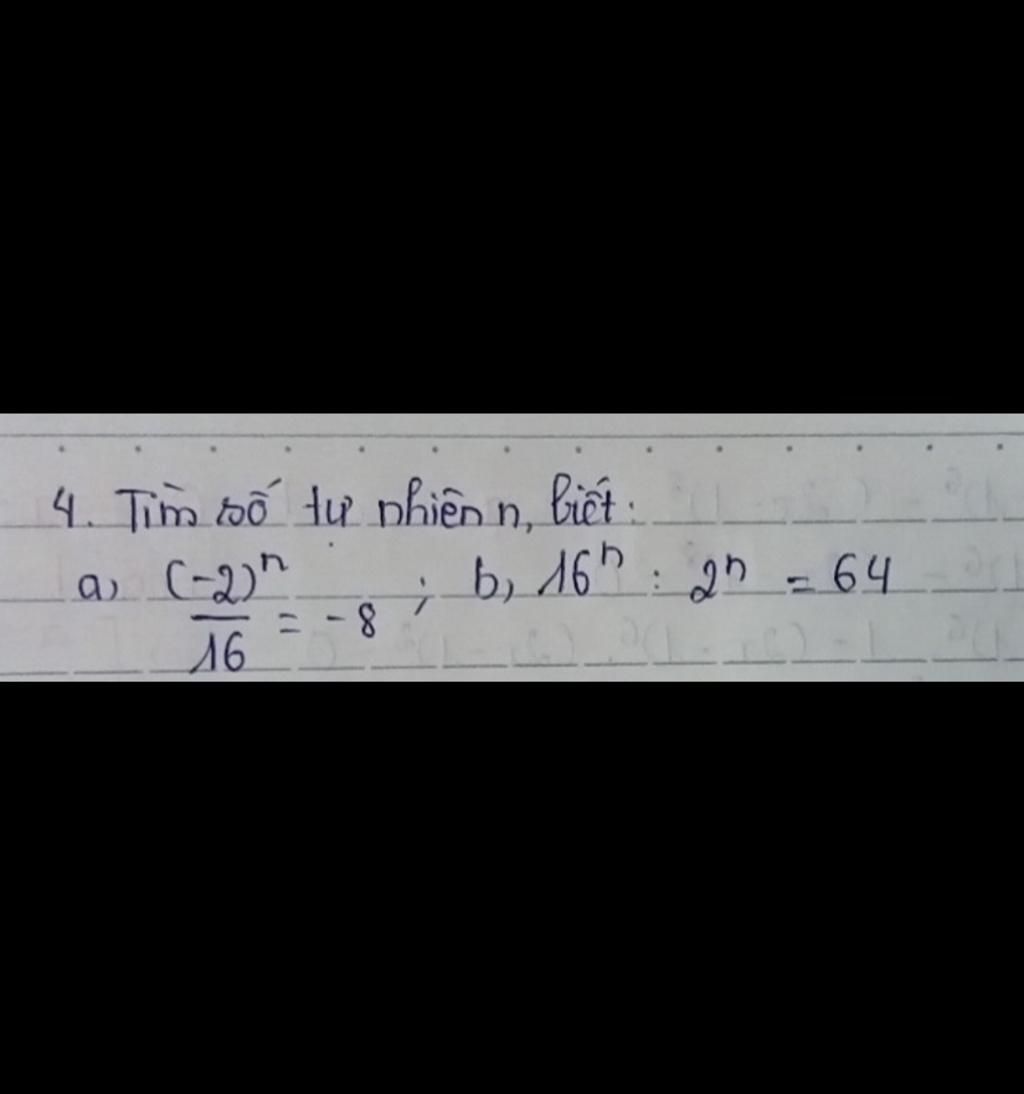 4. Tìm số tự nhiên n, biết:
a, (-2)ⁿ/16 = -8 ; b, 16ⁿ : 2ⁿ = 64